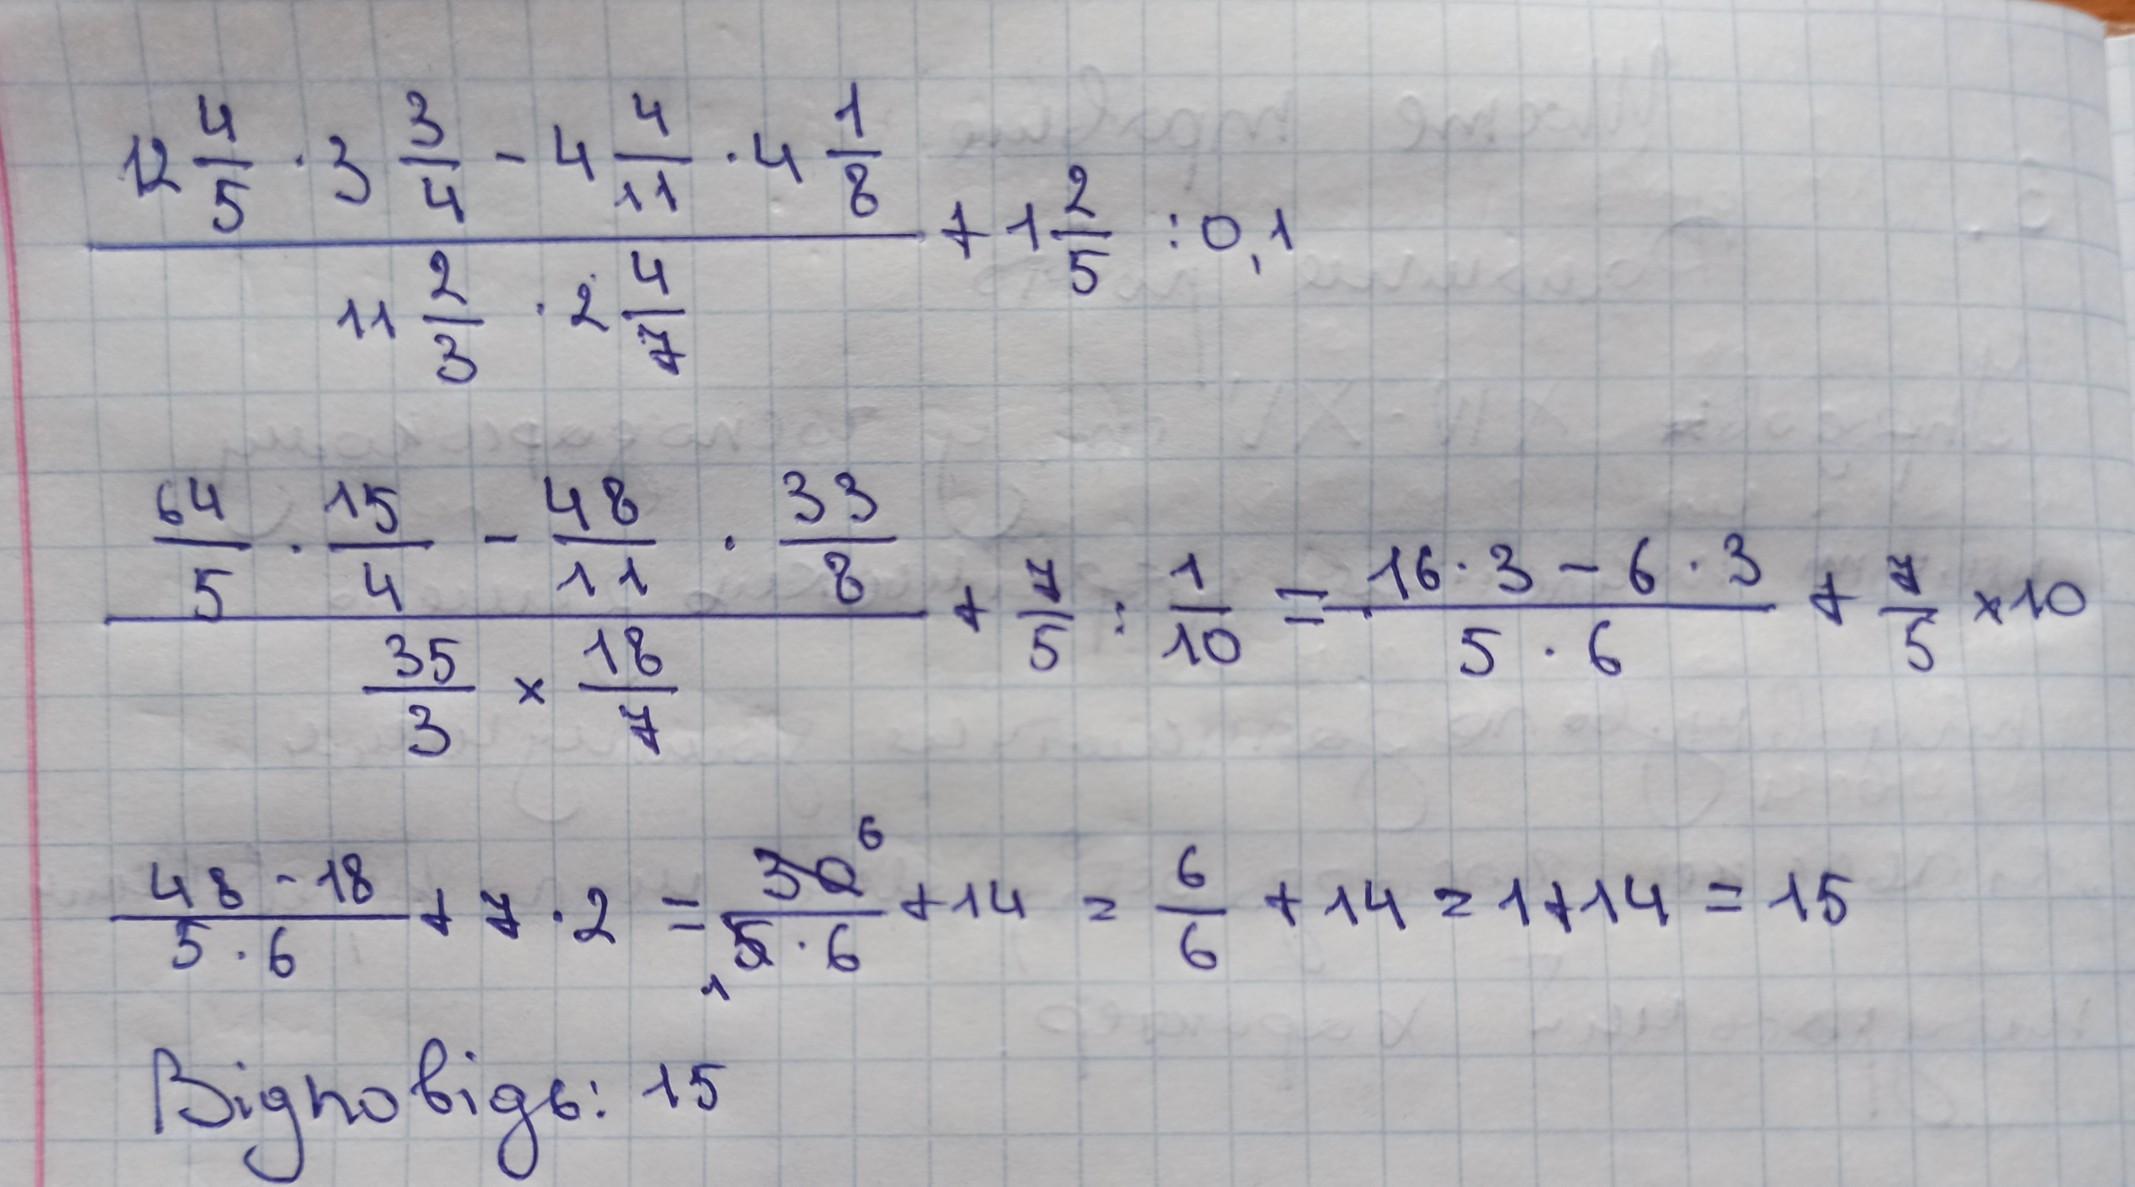 (12 4/5 · 3 3/4 - 4 4/11 · 4 1/8) / (11 2/3 · 2 4/7) + 1 2/5 : 0,1
(64/5 · 15/4 - 48/11 · 33/8) / (35/3 × 18/7) + 7/5 : 1/10 = (16·3 - 6·3) / (5·6) + 7/5 × 10
(48 - 18) / (5·6) + 7·2 = 30 6 / (5 1 · 6) + 14 = 6/6 + 14 = 1+14 = 15
Відповідь: 15